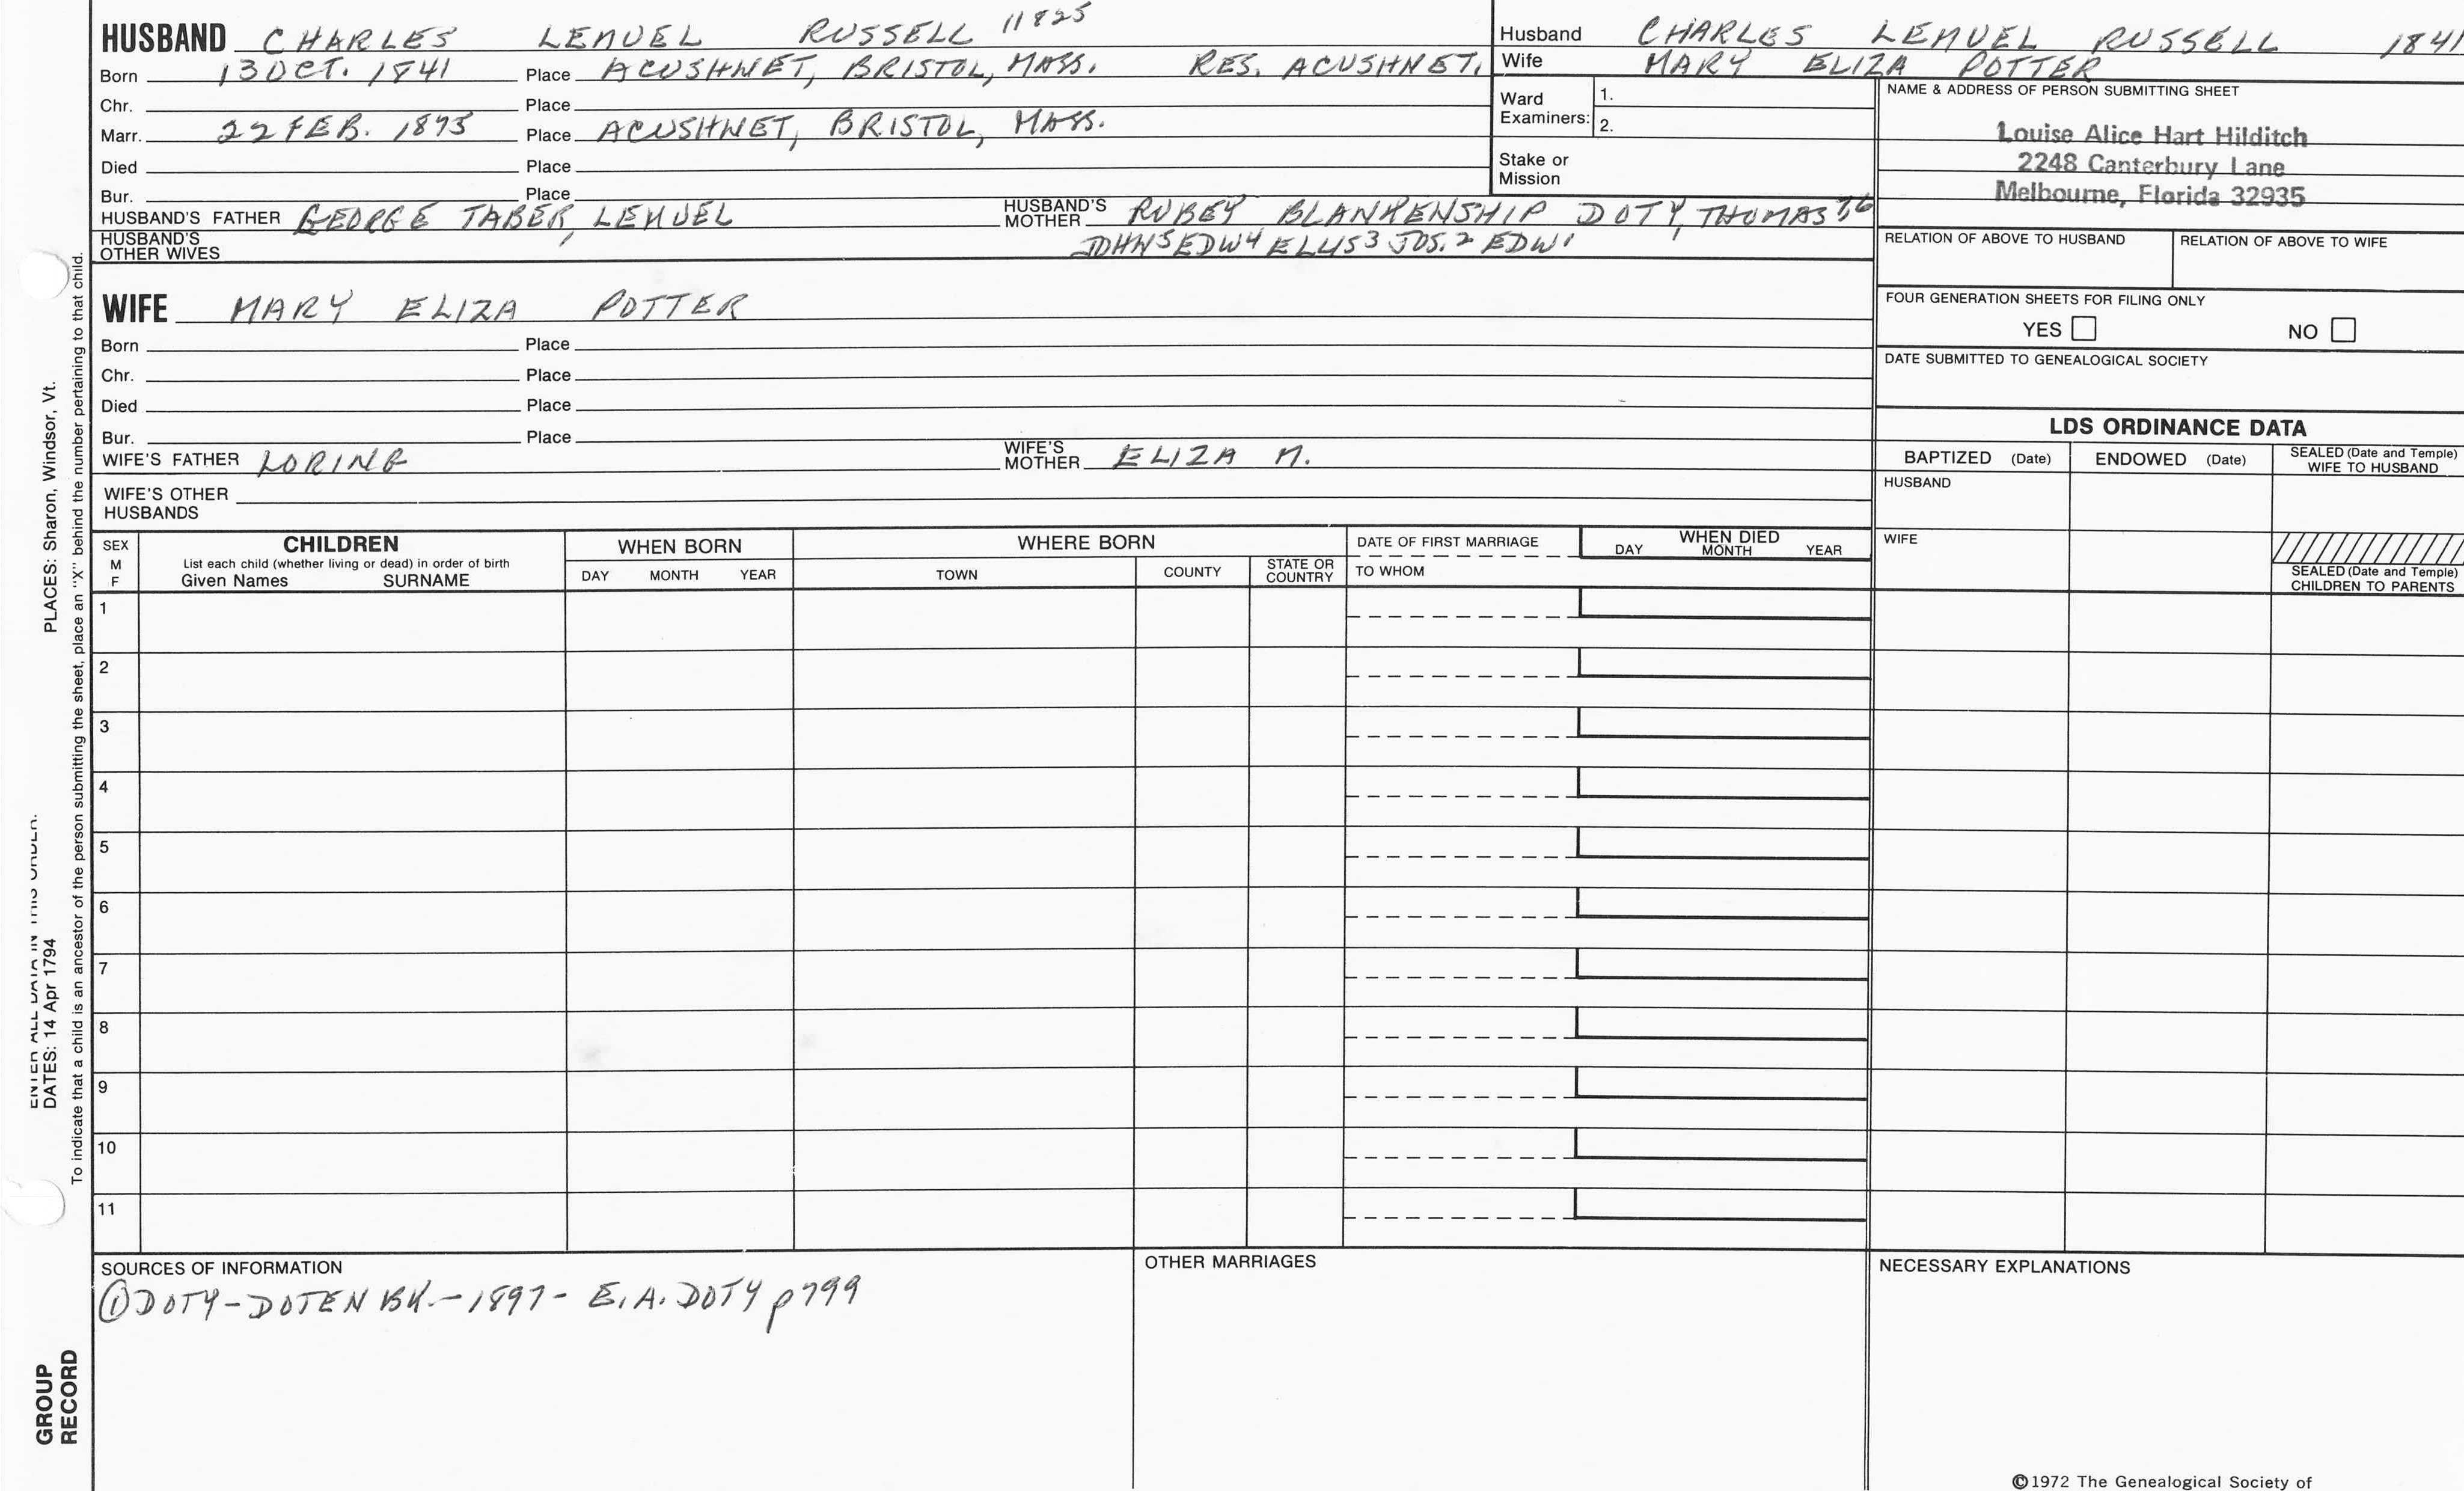 HUSBAND CHARLES LEMUEL RUSSELL 11825
Born 13 OCT. 1841 Place ACUSHNET, BRISTOL, MASS. RES. ACUSHNET.
Chr. Place
Marr. 22 FEB. 1873 Place ACUSHNET, BRISTOL, MASS.
Died Place
Bur. Place
HUSBAND'S FATHER GEORGE TABER, LEMUEL HUSBAND'S MOTHER RUBEY BLANKENSHIP DOTY, THOMAS
HUSBAND'S OTHER WIVES JOHN5 EDW4 ELLIS3 JOS.2 EDW1
Husband CHARLES LEMUEL RUSSELL 1841
Wife MARY ELIZA POTTER
Ward Examiners: 1.
2.
Stake or Mission
NAME & ADDRESS OF PERSON SUBMITTING SHEET
Louise Alice Hart Hilditch
2248 Canterbury Lane
Melbourne, Florida 32935
RELATION OF ABOVE TO HUSBAND RELATION OF ABOVE TO WIFE
FOUR GENERATION SHEETS FOR FILING ONLY
YES NO
DATE SUBMITTED TO GENEALOGICAL SOCIETY
WIFE MARY ELIZA POTTER
Born Place
Chr. Place
Died Place
Bur. Place
WIFE'S FATHER LORING WIFE'S MOTHER ELIZA M.
WIFE'S OTHER HUSBANDS
LDS ORDINANCE DATA
BAPTIZED (Date) ENDOWED (Date) SEALED (Date and Temple) WIFE TO HUSBAND
HUSBAND
WIFE
SEALED (Date and Temple) CHILDREN TO PARENTS
SEX M F
CHILDREN
List each child (whether living or dead) in order of birth
Given Names SURNAME
WHEN BORN
DAY MONTH YEAR
WHERE BORN
TOWN COUNTY STATE OR COUNTRY
DATE OF FIRST MARRIAGE
TO WHOM
WHEN DIED
DAY MONTH YEAR
1
2
3
4
5
6
7
8
9
10
11
SOURCES OF INFORMATION
① DOTY-DOTEN BK.-1897- E.A. DOTY p799
OTHER MARRIAGES
NECESSARY EXPLANATIONS
©1972 The Genealogical Society of
ENTER ALL DATA IN THIS ORDER.
DATES: 14 Apr 1794 PLACES: Sharon, Windsor, Vt.
To indicate that a child is an ancestor of the person submitting the sheet, place an "X" behind the number pertaining to that child.
GROUP
RECORD